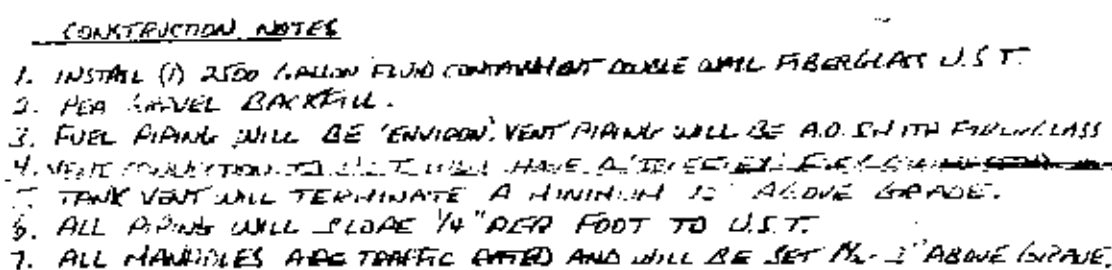 CONSTRUCTION NOTES
1. INSTALL (1) 2500 GALLON FLUID CONTAINMENT DOUBLE WALL FIBERGLASS U.S.T.
2. PEA GRAVEL BACKFILL.
3. FUEL PIPING WILL BE 'ENVIRON'. VENT PIPING WILL BE A.O. SMITH FIBERGLASS
4. VENT CONNECTION TO U.S.T. WILL HAVE A
5. TANK VENT WILL TERMINATE A MINIMUM 12' ABOVE GRADE.
6. ALL PIPING WILL SLOPE 1/4" PER FOOT TO U.S.T.
7. ALL MANHOLES ARE TRAFFIC RATED AND WILL BE SET ABOVE GRADE.